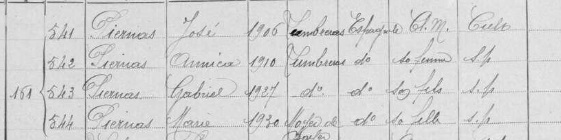 541 Piernas José 1906 Lumbreras Espagnole C.M. Cult
542 Piernas Annica 1910 Lumbreras do sa femme s.p
151 543 Piernas Gabriel 1927 do do so fils s.p
544 Piernas Marie 1930 de do sa fille s.p